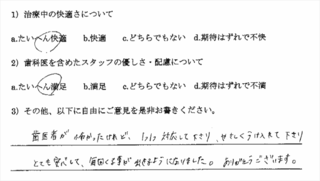 1) 治療中の快適さについて
a.たいへん快適 b.快適 c.どちらでもない d.期待はずれで不快
2) 歯科医を含めたスタッフの優しさ・配慮について
a.たいへん満足 b.満足 c.どちらでもない d.期待はずれで不満
3) その他、以下に自由にご意見を是非お書きください。
歯医者が 怖かったけれど、 対応して下さり、やさしく受け入れて下さり
とても安心して、毎回くる事が出来るようになりました。ありがとうございます。